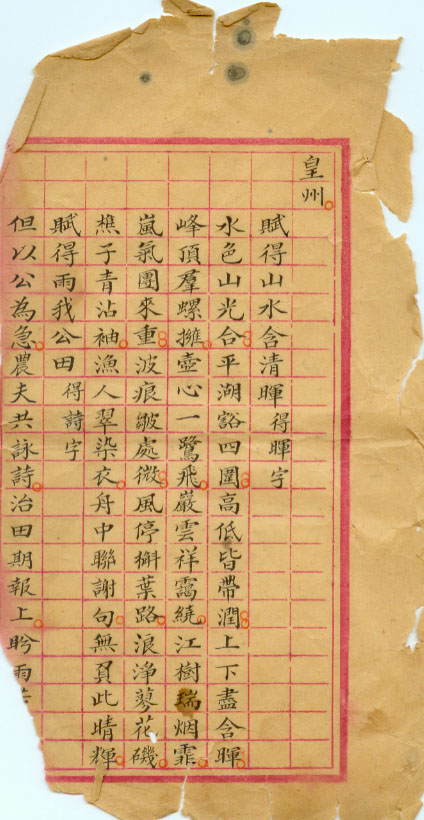 皇州
賦得山水含清暉得暉字
水色山光合平湖豁四圍高低皆帶潤上下盡含暉
峰頂羣螺擁壺心一鷺飛巖雲祥靄繞江樹瑞烟霏
嵐氣團來重波痕皺處微風停槲葉路浪淨蓼花磯
樵子青沾袖漁人翠染衣舟中聯謝句無負此晴輝
賦得雨我公田得詩字
但以公為急農夫共詠詩治田期報上盻雨